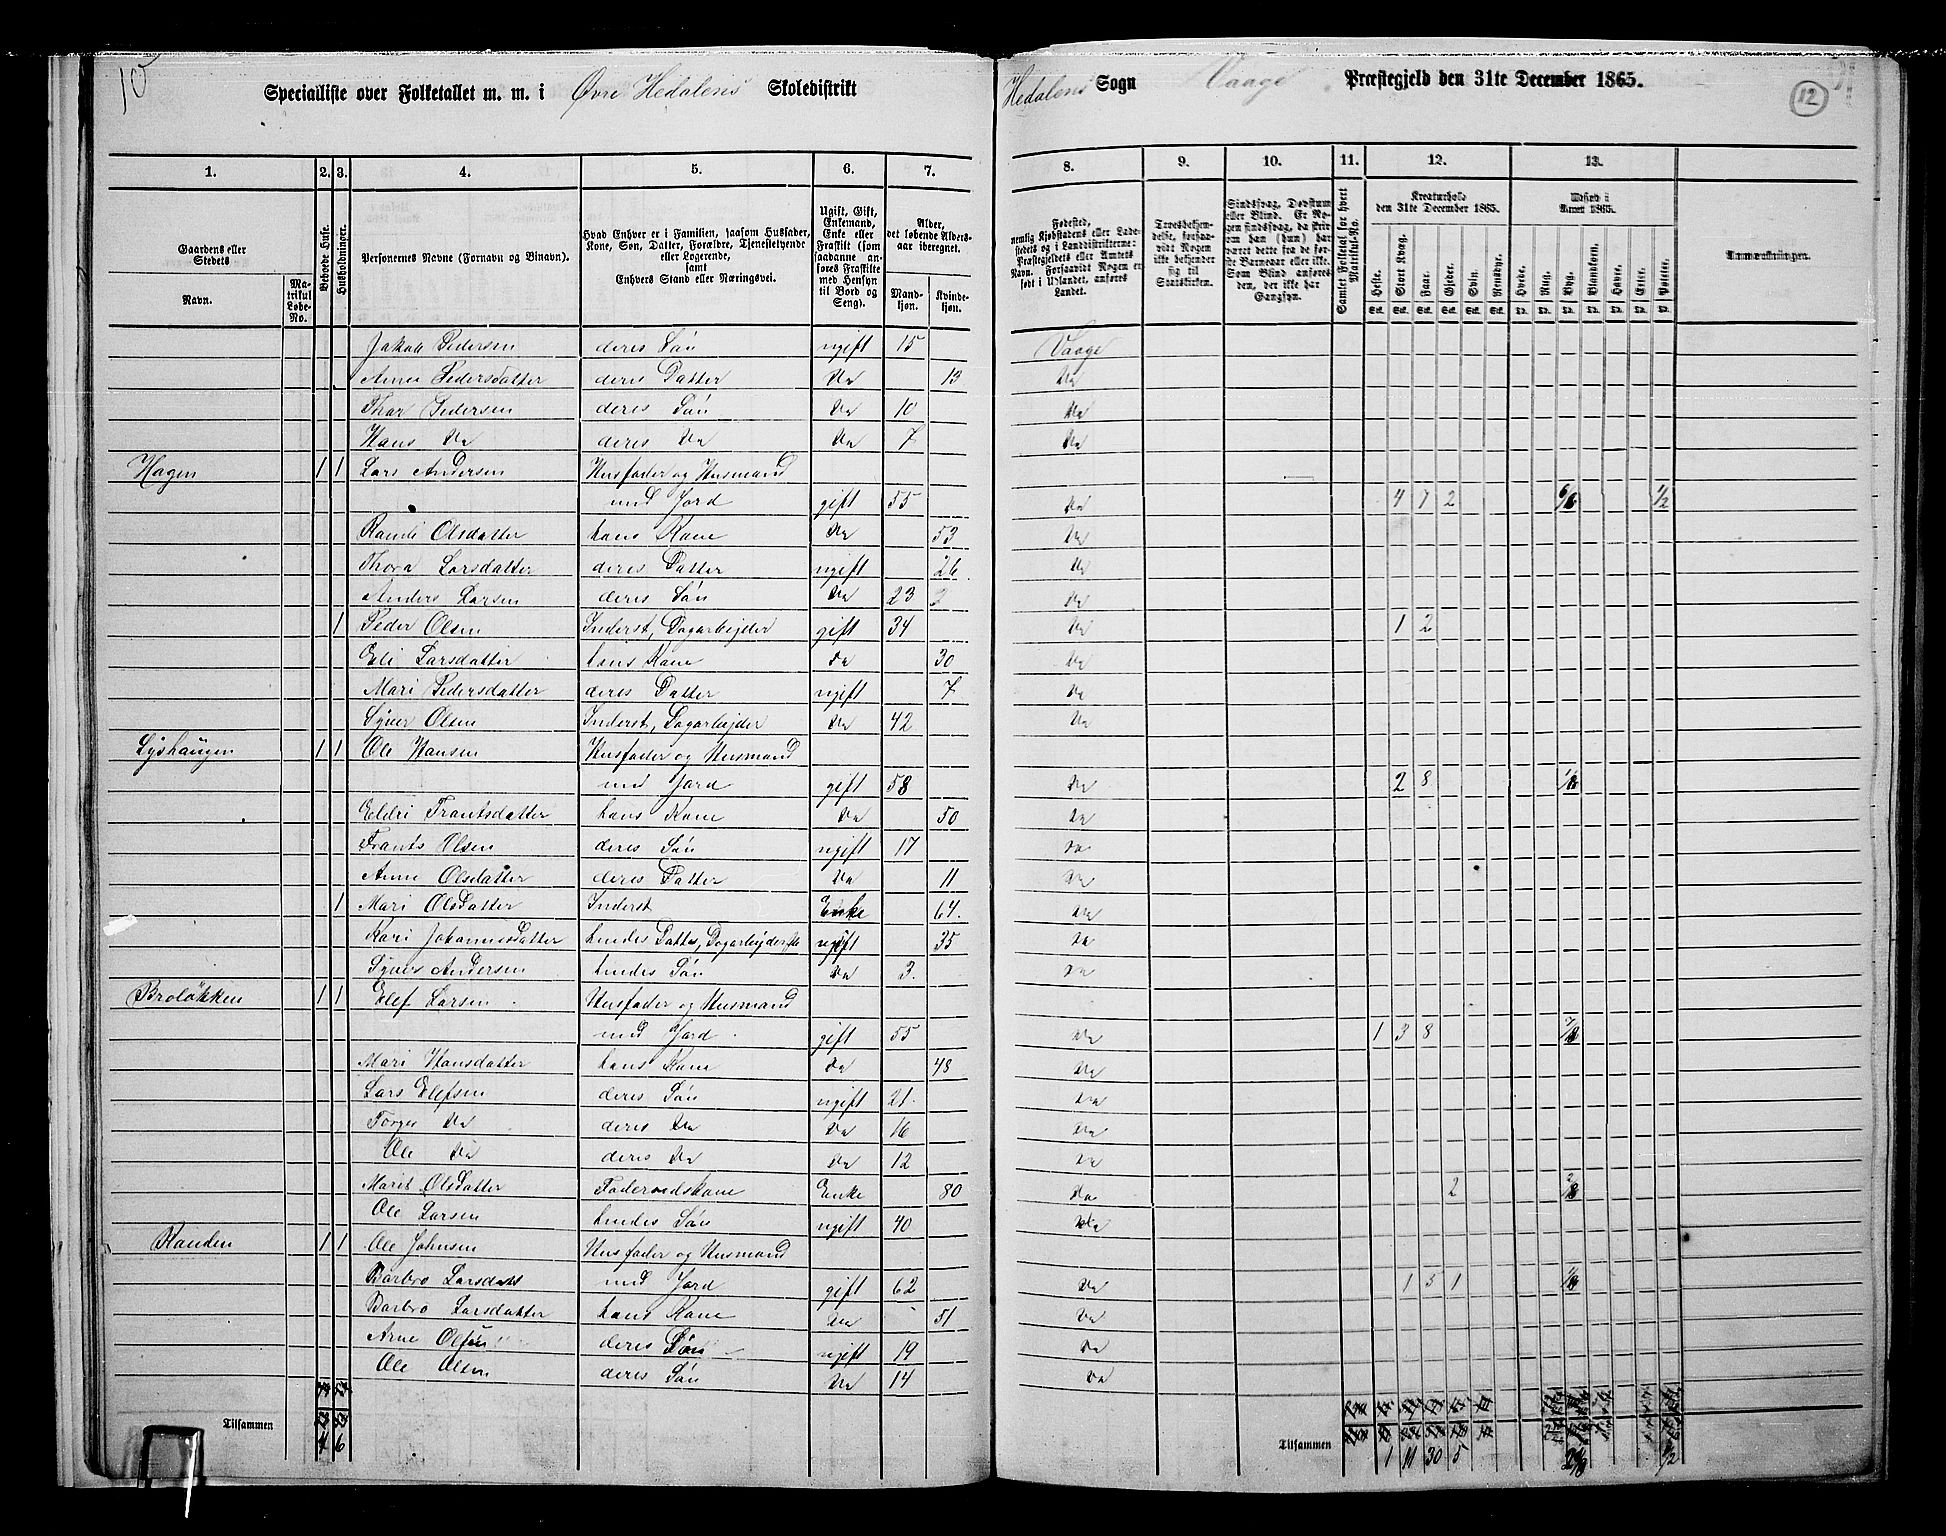 10
Specialliste over Folketallet m. m. i Øvre Hedalens Skoledistrikt
Hedalens Sogn Vaage Præstegjeld den 31te December 1865.
12
1. 2. 3. 4. 5. 6. 7.
Gaardens eller Stedets
Navn.
Matrikul Løbe-No.
Beboede Huse.
Husholdninger.
Personernes Navne (Fornavn og Binavn).
Hvad Enhver er i Familien, saasom Husfader, Kone, Søn, Datter, Forældre, Tjenestetyende eller Logerende, samt Enhvers Stand eller Næringsvei.
Ugift, Gift, Enkemand, Enke eller Fraskilt (som saadanne anføres Fraskilte med Hensyn til Bord og Seng).
Alder, det løbende Aldersaar iberegnet.
Mandkjøn.
Kvindekjøn.
8. 9. 10. 11. 12. 13.
Fødested, nemlig Kjøbstadens eller Ladestedets og i Landdistrikterne: Præstegjeldets eller Amtets Navn. Forsaavidt Nogen er født i Udlandet, anføres Landet.
Troesbekjendelse, forsaavidt Nogen ikke bekjender sig til Statskirken.
Sindssvag, Døvstum eller Blind. Er Nogen sindssvag, da skrives om han (hun) har været dette fra de første Barneaar eller ikke. Som Blind anføres den, der ikke har Gangsyn.
Samlet Folketal for hvert Matrikul-No.
Kreaturhold den 31te December 1865.
Heste. Stort Kvæg. Faar. Gjeder. Svin. Rensdyr.
Udsæd i Aaret 1865.
Hvede. Rug. Byg. Blandkorn. Havre. Erter. Poteter.
Anmærkninger.
Jakob Pedersen deres Søn ugift 15 Vaage
Anne Pedersdatter deres Datter Do 13 Do
Thor Pedersen deres Søn Do 10 Do
Hans Do deres Do Do 7 Do
Hagen 1 1 Lars Andersen Husfader og Husmand
med Jord gift 55 Do 4 7 2 6/8 1/2
Randi Olsdatter hans Kone Do 53 Do
Thora Larsdatter deres Datter ugift 26 Do
Anders Larsen deres Søn Do 23 Do
1 Peder Olsen Inderst, Dagarbejder gift 34 Do 1 2
Eli Larsdatter hans Kone Do 30 Do
Mari Pedersdatter deres Datter ugift 7 Do
Syver Olsen Inderst, Dagarbejder Do 42 Do
Lyshaugen 1 1 Ole Hansen Husfader og Husmand
med Jord gift 58 Do 2 8
Eldri Frantsdatter hans Kone Do 50 Do
Frants Olsen deres Søn ugift 17 Do
Anne Olsdatter deres Datter Do 11 Do
1 Mari Olsdatter Inderst Enke 64 Do
Kari Johannesdatter hendes Datter, ugift 35 Do
Syver Andersen hendes Søn Do 3 Do
Broløkken 1 1 Elef Larsen Husfader og Husmand
med Jord gift 55 Do 1 3 8
Mari Hansdatter hans Kone Do 48 Do
Lars Elefsen deres Søn ugift 21 Do
Torger Do deres Do Do 16 Do
Ole Do deres Do Do 12 Do
Marit Olsdatter Føderaadskone Enke 80 Do 2 2/8
Ole Larsen hendes Søn ugift 40 Do
Randen 1 1 Ole Johnsen Husfader og Husmand
Barbro Larsdatt med Jord gift 62 Do 1 5 1
Barbro Larsdatter hans Kone Do 51 Do
Arne Olsen deres Søn ugift 19 Do
Ole Olsen deres Søn Do 14 Do
Tilsammen 4 6
Tilsammen 1 11 30 5 1/2